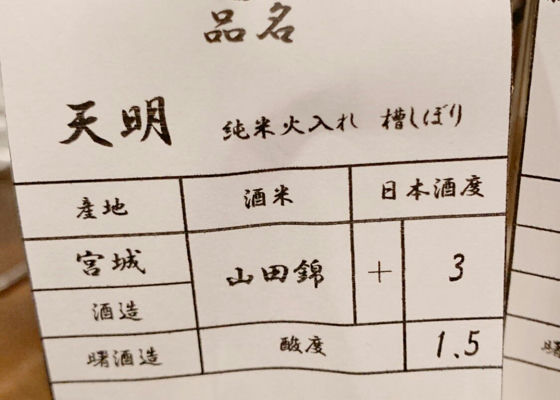 品名
天明 純米火入れ 槽しぼり
産地 酒米 日本酒度
宮城 山田錦 + 3
酒造
曙酒造 酸度 1.5
曙